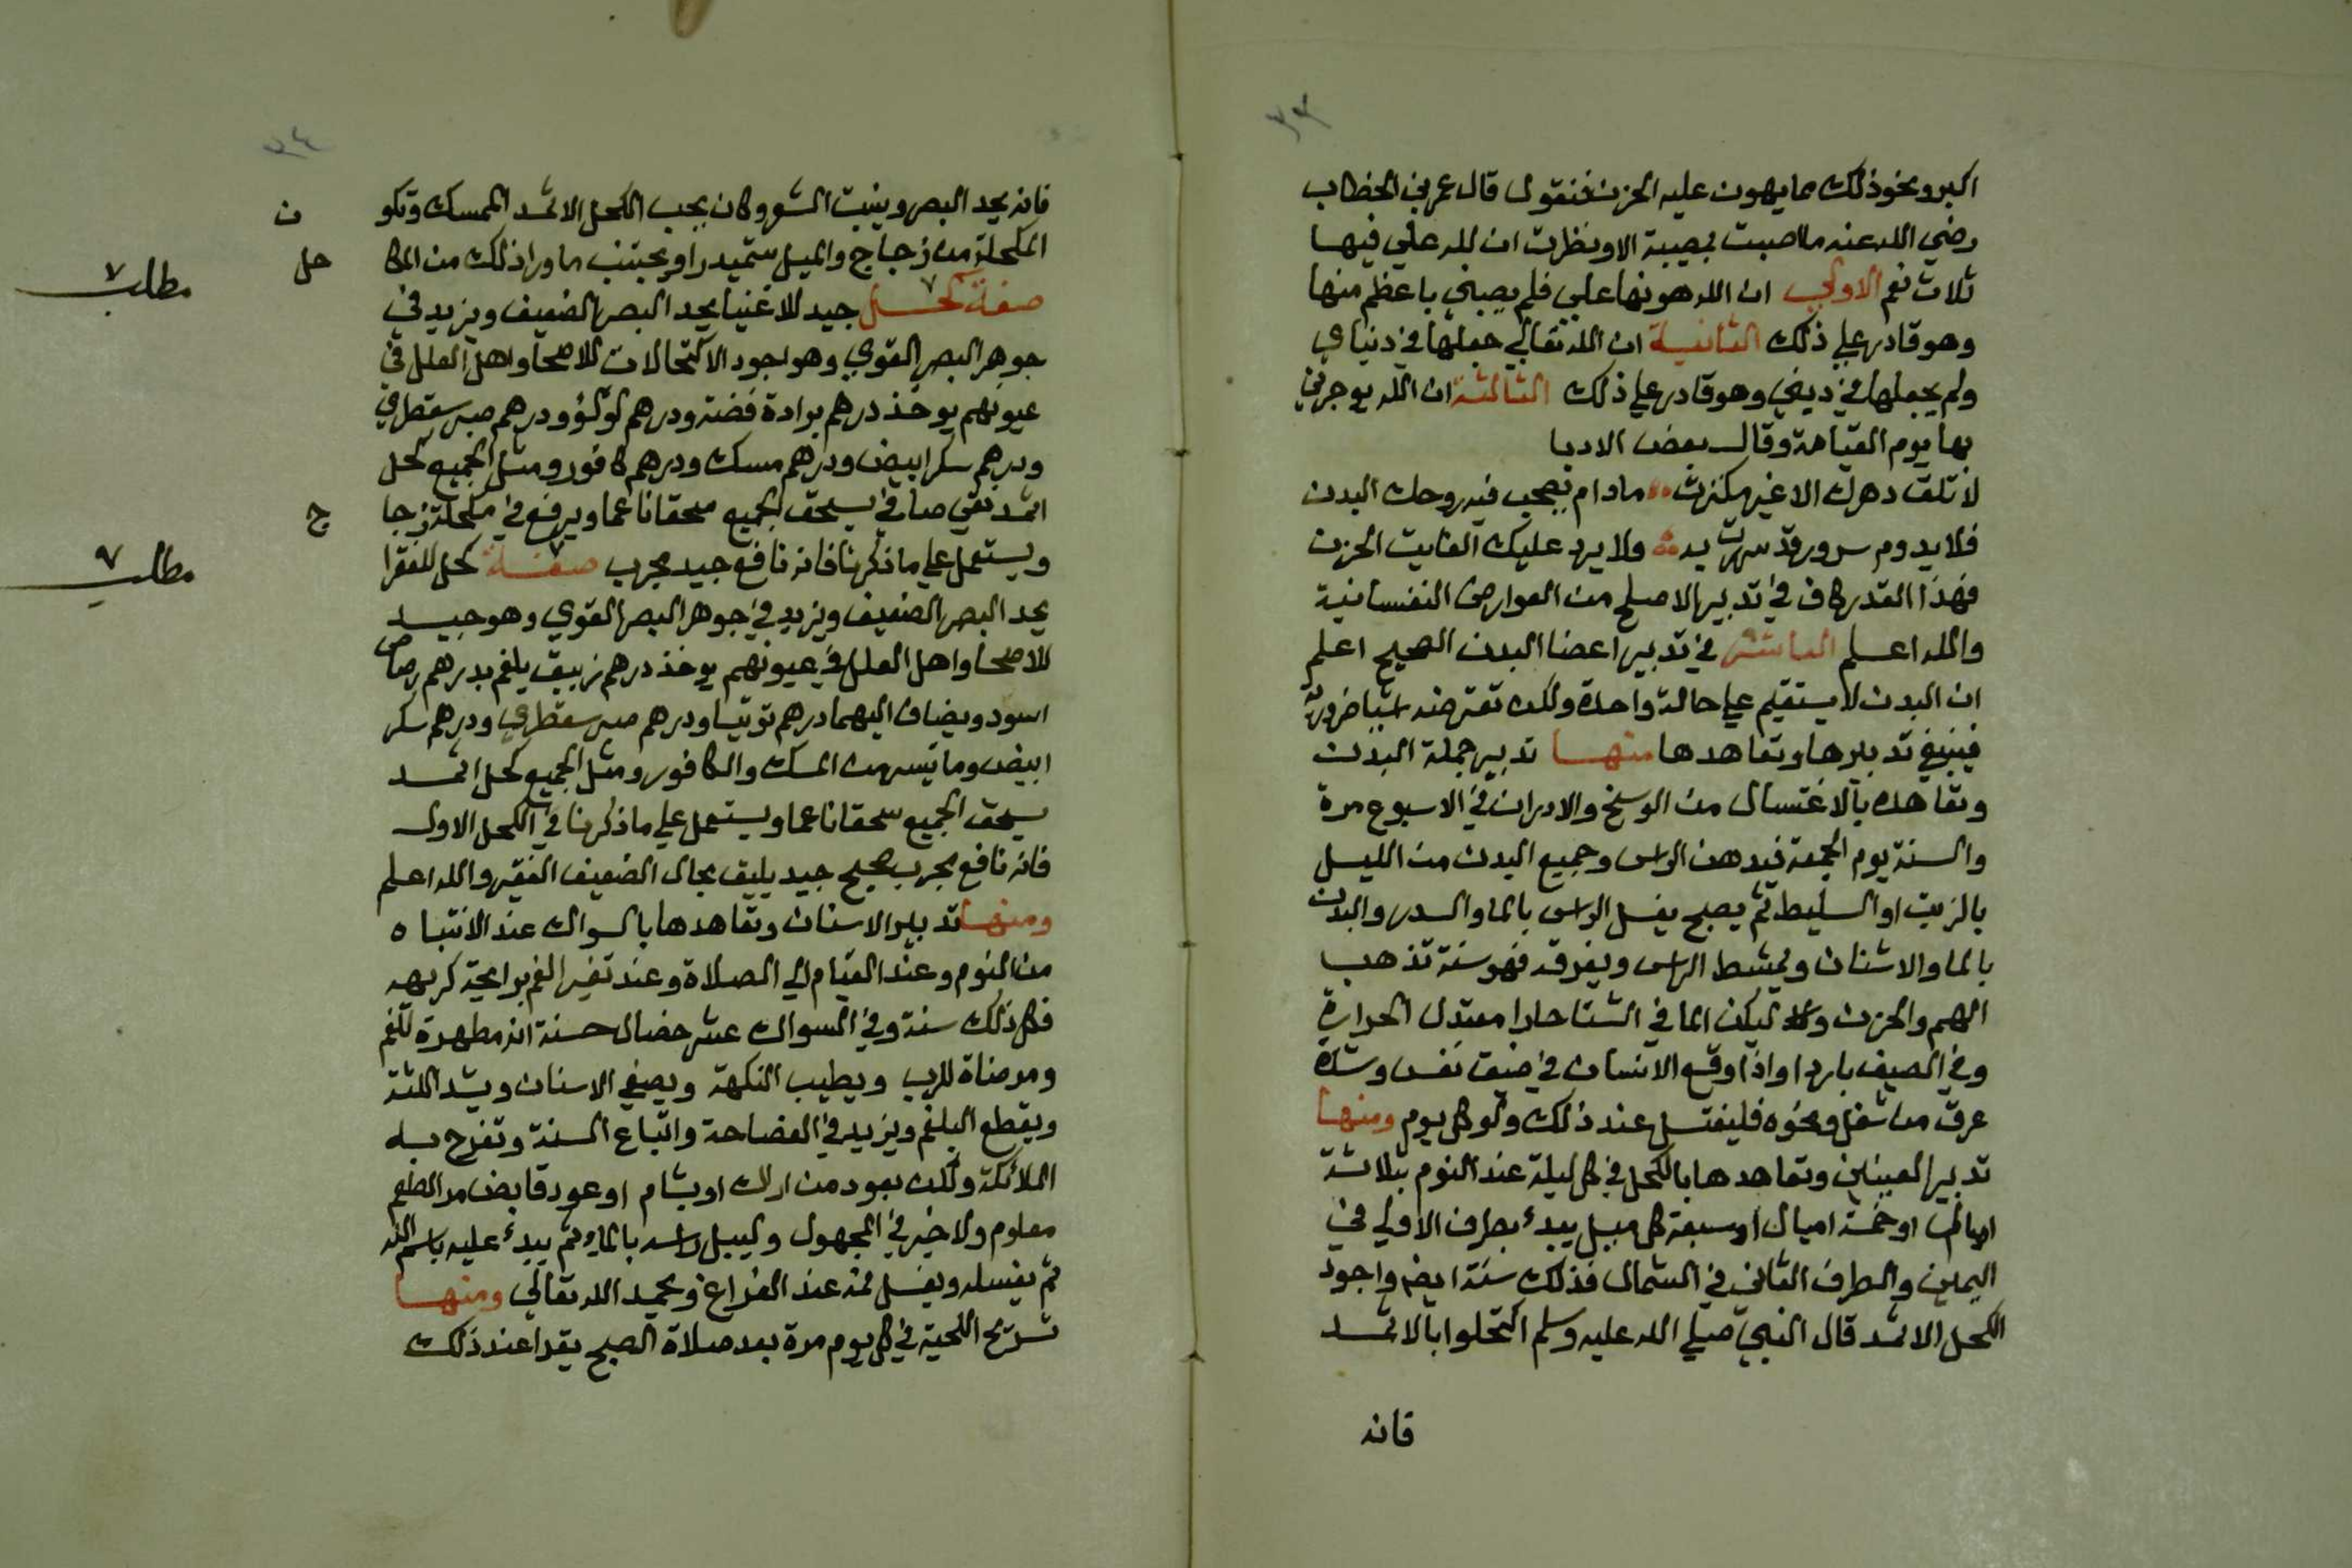 ٣٣
اكبر ونحو ذلك مما يهون عليه الحزن فنقول قال عمر بن الخطاب
رضي الله عنه ما اصبت بمصيبة الا ونظرت ان لله علي فيها
ثلاث نعم الاولي ان الله هونها علي فلم يصبني باعظم منها
وهو قادر علي ذلك الثانية ان الله تعالي جعلها في دنياي
ولم يجعلها في ديني وهو قادر علي ذلك الثالثة ان الله يوجرني
بها يوم القيامة وقال بعض الادبا
لا تلق دهرك الا غير مكترث مادام يصحب فيه روحك البدن
فلا يدوم سرور قد سررت به ولا يرد عليك الفايت الحزن
فهذا القدر كاف في تدبير الاصلح من العوارض النفسانية
والله اعلم العاشر في تدبير اعضا البدن الصحيح اعلم
ان البدن لا يستقيم علي حالة واحدة ولكن تعترضه اشيا ضرورية
فينبغي تدبيرها وتعاهدها منها تدبير جملة البدن
وتعاهده بالاغتسال من الوسخ والادران في الاسبوع مرة
والسنة يوم الجمعة فيدهن الراس وجميع البدن من الليل
بالزيت او السليط ثم يصبح يغسل الراس بالما والسدر والبدن
بالما والاشنان ويمشط الراس ويفرقه فهو سنة تذهب
الهم والحزن وليكن الما في الشتا حارا معتدل الحرارة
وفي الصيف باردا واذا وقع الانسان في ضيق نفس وشدة
عرق من شغل ونحوه فليغتسل عند ذلك ولو كل يوم ومنها
تدبير العينين وتعاهدها بالكحل في كل ليلة عند النوم بثلاثة
اميال او خمسة اميال او سبعة كل ميل يبدء بطرف الاولي في
اليمين والطرف الثاني في الشمال فذلك سنة ايضا واجود
الكحل الاثمد قال النبي صلي الله عليه وسلم اكتحلوا بالاثمد
فانه
٣٤
فانه يحد البصر وينبت الشعر وكان يحب الكحل الاثمد الممسك وتكو ن
المكحلة من زجاج والميل ويجتنب ما ورا ذلك من المكا حل
مطلب ٧
صفة كحل جيد للاغنيا يحد البصر الضعيف ويزيد في
جوهر البصر القوي وهو اجود الاكتحالات للاصحا واهل العلل في
عيونهم يوخذ درهم برادة فضة ودرهم لولؤ ودرهم صبر سقطري
ودرهم سكر ابيض ودرهم مسك ودرهم كافور ومثل الجميع كحل
اثمد نقي صافي يسحق الجميع سحقا ناعما ويرفع في مكحلة زجا ج
ويستعمل علي ما ذكرنا فانه نافع جيد مجرب صفة كحل للفقرا
مطلب ٩
يحد البصر الضعيف ويزيد في جوهر البصر القوي وهو جيد
للاصحا واهل العلل في عيونهم يوخذ درهم زيبق يلغم بدرهم رصاص
اسود ويضاف اليهما درهم توتيا ودرهم صبر سقطري ودرهم سكر
ابيض وما تيسر من المسك والكافور ومثل الجميع كحل اثمد
يسحق الجميع سحقا ناعما ويستعمل علي ما ذكرنا في الكحل الاول
فانه نافع مجرب صحيح جيد يليق بحال الضعيف الفقير والله اعلم
ومنها تدبير الاسنان وتعاهدها بالسواك عند الانتباه
من النوم وعند القيام الي الصلاة وعند تغير الفم برايحة كريهه
فكل ذلك سنة وفي السواك عشر خصال حسنة انه مطهرة للفم
ومرضاة للرب ويطيب النكهة ويصفي الاسنان ويشد اللثة
ويقطع البلغم ويزيد في الفصاحة واتباع السنة وتفرح به
الملائكة ولكن بعود من اراك او بشام او عود قابض مر الطعم
معلوم ولا خير في المجهول وليبل راسه بالماء ثم يبدء عليه باسم الله
ثم يغسله ويغسل فمه عند الفراغ ويحمد الله تعالي ومنها
تسريح اللحية في كل يوم مرة بعد صلاة الصبح يقرا عند ذلك